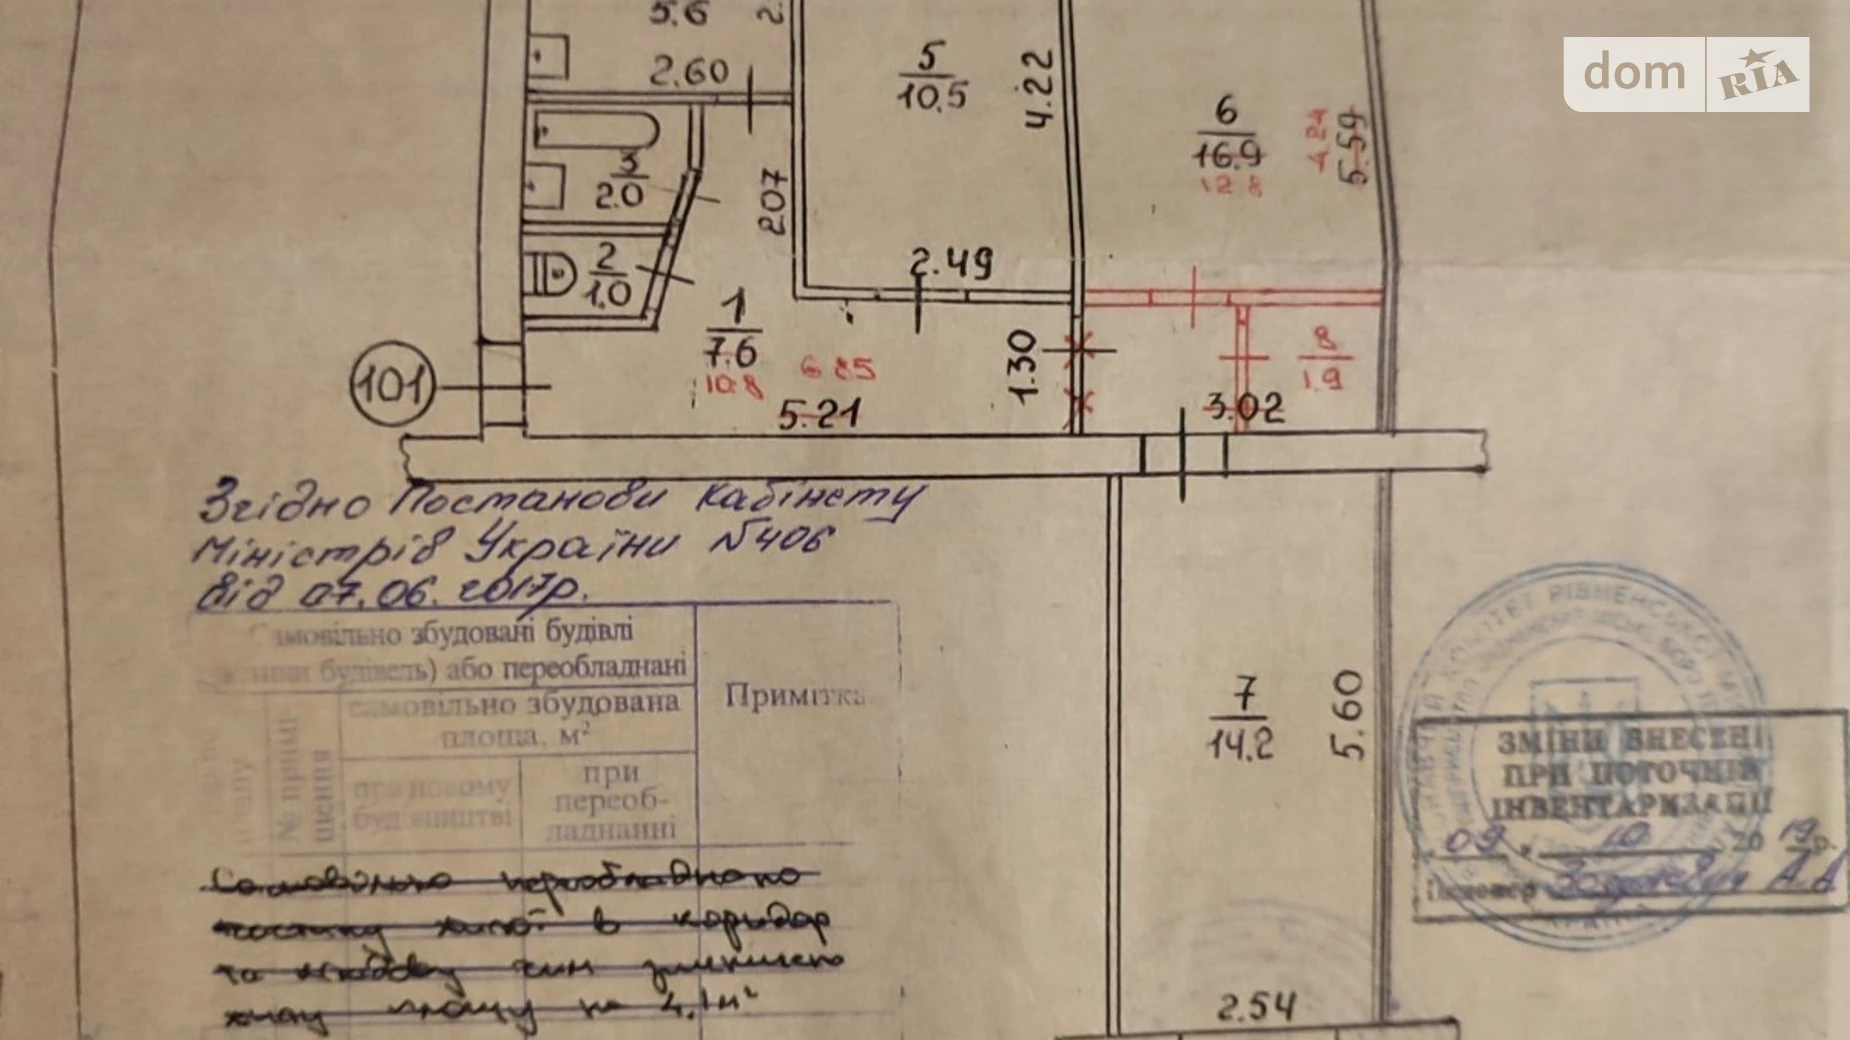 5.6
2.
2.60
5
10.5
4.22
dom RIA
6
16.9
12.8
4.24
5.59
3
2.0
2.07
2
1.0
2.49
1
7.6
10.8
6.85
5.21
1.30
8
1.9
3.02
101
Згідно Постанови Кабінету
Міністрів України №406
від 07.06.2017р.
Самовільно збудовані будівлі
будівель) або переобладнані
самовільно збудована
площа, м²
Примітка
№ примі-
щення
при новому
будівництві
при
переоб-
ладнанні
Самовільно переобладнано
частину жилої в коридор
та кладову чим зменшено
жилу площу на 4.1м²
7
14.2
5.60
2.54
ЗМІНИ ВНЕСЕНІ
ПРИ ПОТОЧНІЙ
ІНВЕНТАРИЗАЦІЇ
09 10 2019р.
Інженер А.А